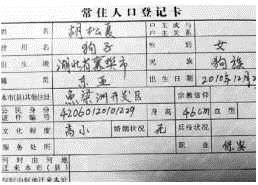 常住人口登记卡
姓名 胡松嘉 户主或与户主关系
曾用名 狗子 性别 女
出生地 湖北省襄樊市 民族 狗族
籍贯 东亚 出生日期 2010年12月2
本市(县)其他住址 鱼梁洲开发区 宗教信仰
公民身份证件编号 42060120101229 身高 46cm 血型
文化程度 高小 婚姻状况 无 兵役状况
服务处所 职业 保安
何时由何地迁来本市(县)